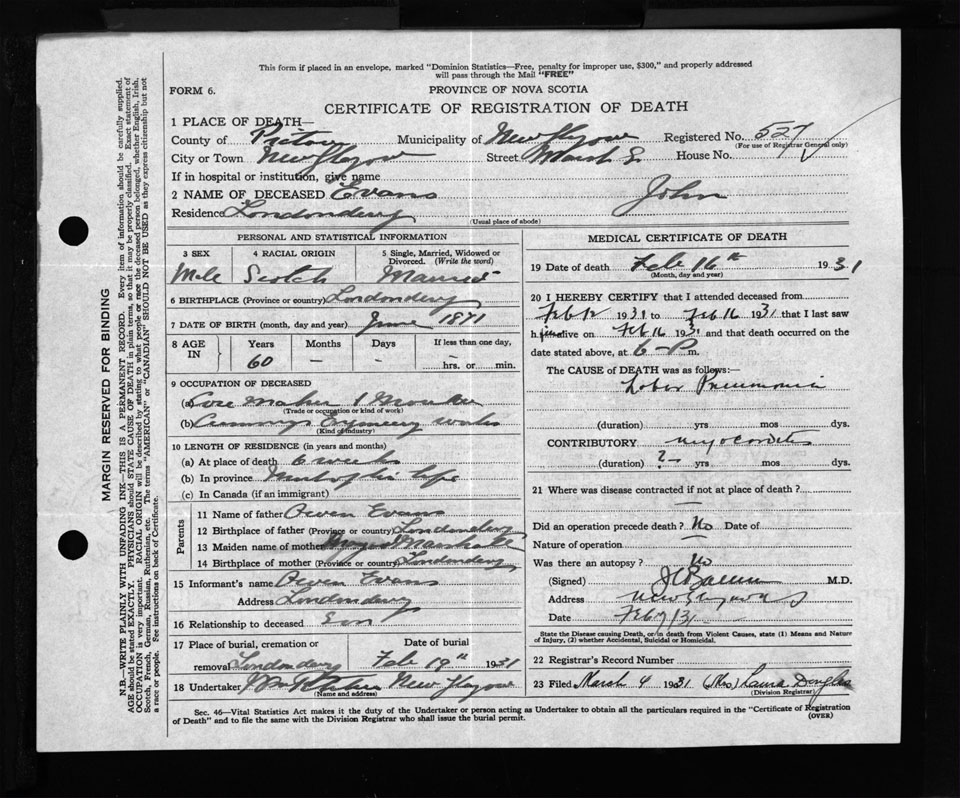 This form if placed in an envelope, marked "Dominion Statistics—Free, penalty for improper use, $300," and properly addressed
will pass through the Mail "FREE"
FORM 6.
PROVINCE OF NOVA SCOTIA
CERTIFICATE OF REGISTRATION OF DEATH
1 PLACE OF DEATH—
County of Pictou Municipality of New Glasgow Registered No. 527
(For use of Registrar General only)
City or Town New Glasgow Street Marsh S. House No.
If in hospital or institution, give name
2 NAME OF DECEASED Evans John
Residence Londonderry
(Usual place of abode)
PERSONAL AND STATISTICAL INFORMATION
3 SEX 4 RACIAL ORIGIN 5 Single, Married, Widowed or
Divorced. (Write the word)
Male Scotch Married
6 BIRTHPLACE (Province or country) Londonderry
7 DATE OF BIRTH (month, day and year) June 1871
8 AGE IN Years Months Days If less than one day,
60 — — — hrs. or min.
9 OCCUPATION OF DECEASED
(a) Core Maker
(Trade or occupation or kind of work)
(b) Works
(Kind of industry)
10 LENGTH OF RESIDENCE (in years and months)
(a) At place of death 6 weeks
(b) In province Most of his life
(c) In Canada (if an immigrant)
Parents
11 Name of father Owen Evans
12 Birthplace of father (Province or country) Londonderry
13 Maiden name of mother
14 Birthplace of mother (Province or country) Londonderry
15 Informant's name Owen Evans
Address Londonderry
16 Relationship to deceased Son
17 Place of burial, cremation or Date of burial
removal Londonderry Feb 19th 1931
18 Undertaker New Glasgow
(Name and address)
MEDICAL CERTIFICATE OF DEATH
19 Date of death Feb 16th 1931
(Month, day and year)
20 I HEREBY CERTIFY that I attended deceased from
Feb 12 1931 to Feb 16 1931 that I last saw
him alive on Feb 16 1931 and that death occurred on the
date stated above, at 6—P m.
The CAUSE of DEATH was as follows:—
Lobar Pneumonia
(duration) yrs mos dys.
CONTRIBUTORY myocarditis
(duration) ?— yrs mos dys.
21 Where was disease contracted if not at place of death?
—
Did an operation precede death? No Date of
Nature of operation —
Was there an autopsy? No
(Signed) M.D.
Address New Glasgow NS
Date Feb 31
State the Disease causing Death, or in death from Violent Causes, state (1) Means and Nature
of Injury, (2) whether Accidental, Suicidal or Homicidal.
22 Registrar's Record Number
23 Filed March 4 1931 (Mrs) Laura Douglas
(Division Registrar)
Sec. 46—Vital Statistics Act makes it the duty of the Undertaker or person acting as Undertaker to obtain all the particulars required in the "Certificate of Registration
of Death" and to file the same with the Division Registrar who shall issue the burial permit.
(OVER)
MARGIN RESERVED FOR BINDING
N.B.—WRITE PLAINLY WITH UNFADING INK—THIS IS A PERMANENT RECORD. Every item of information should be carefully supplied.
AGE should be stated EXACTLY. PHYSICIANS should STATE CAUSE OF DEATH in plain terms, so that it may be properly classified. Exact statement of
OCCUPATION is very important. RACIAL ORIGIN will be described by stating to what people or race the deceased person belonged, whether English, Irish,
Scotch, French, German, Russian, Ruthenian, etc. The terms "AMERICAN" or "CANADIAN" SHOULD NOT BE USED as they express citizenship but not
a race or people. See instructions on back of Certificate.